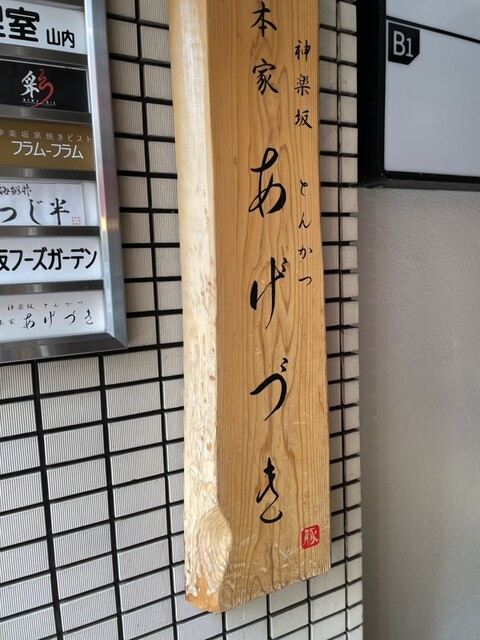 室 山内
彩
神楽坂窯焼きビスト
フラム-フラム
つじ半
坂フーズガーデン
神楽坂 とんかつ
本家 あげづき
神楽坂 とんかつ
本家 あげづき
豚
B1